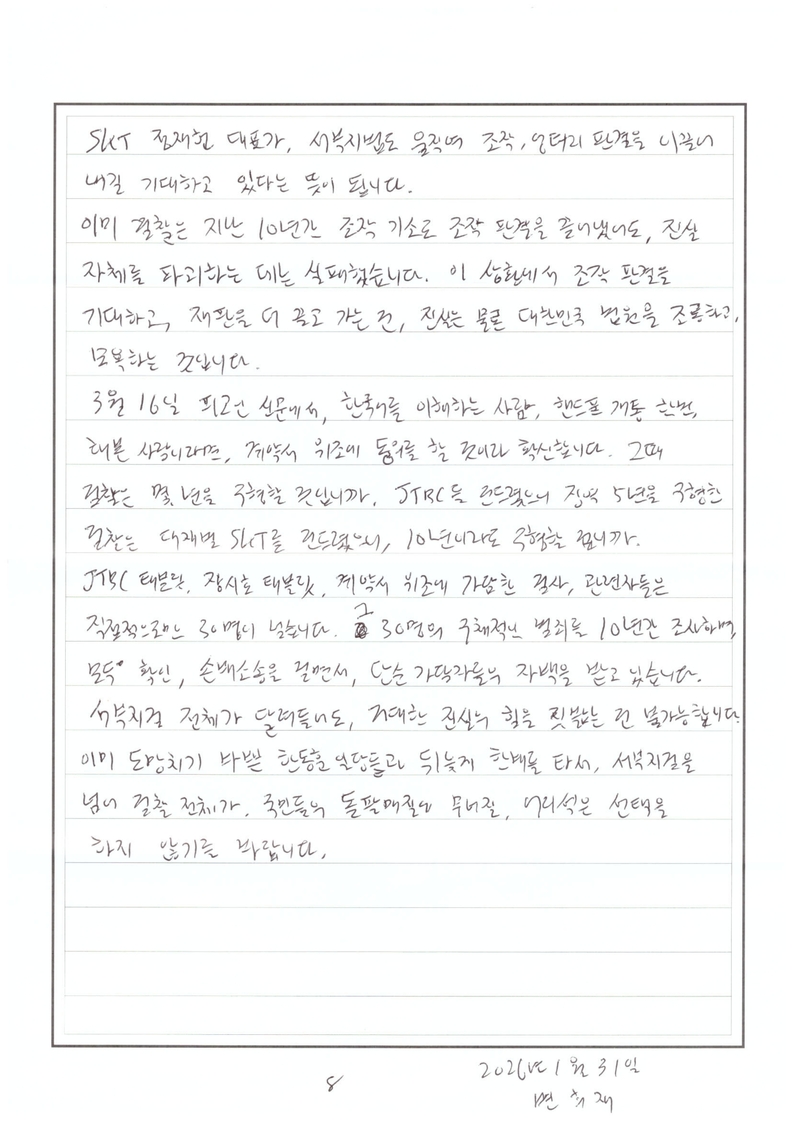 SKT 정재헌 대표가, 서부지법도 움직여 조작, 엉터리 판결을 이끌어
내길 기대하고 있다는 뜻이 됩니다.
이미 검찰은 지난 10년간 조작 기소로 조작 판결을 끌어냈어도, 진실
자체를 파괴하는 데는 실패했습니다. 이 상황에서 조작 판결을
기대하고, 재판을 더 끌고 가는 건, 진실은 물론 대한민국 법원을 조롱하고,
모욕하는 것입니다.
3월 16일 피고인 신문에서, 한국어를 이해하는 사람, 핸드폰 개통 한번,
해본 사람이라면, 계약서 위조에 동의를 할 것이라 확신합니다. 그때
검찰은 몇 년을 구형할 것입니까. JTBC를 건드렸으니 징역 5년을 구형한
검찰은 대재벌 SKT를 건드렸으니, 10년이라도 구형할 겁니까.
JTBC 태블릿, 장시호 태블릿, 계약서 위조에 가담한 검사, 관련자들은
직접적으로만 30명이 넘습니다. 그 30명의 구체적인 범죄를 10년간 조사하며,
모두 확인, 손배소송을 걸면서, 단순 가담자들의 자백을 받고 있습니다.
서부지검 전체가 달려들어도, 거대한 진실의 힘을 짓밟는 건 불가능합니다.
이미 도망치기 바쁜 한동훈 일당들과 뒤늦게 한배를 타서, 서부지검을
넘어 검찰 전체가, 국민들의 돌팔매질에 무너질, 어리석은 선택을
하지 않기를 바랍니다.
8
2026년 1월 31일
변희재